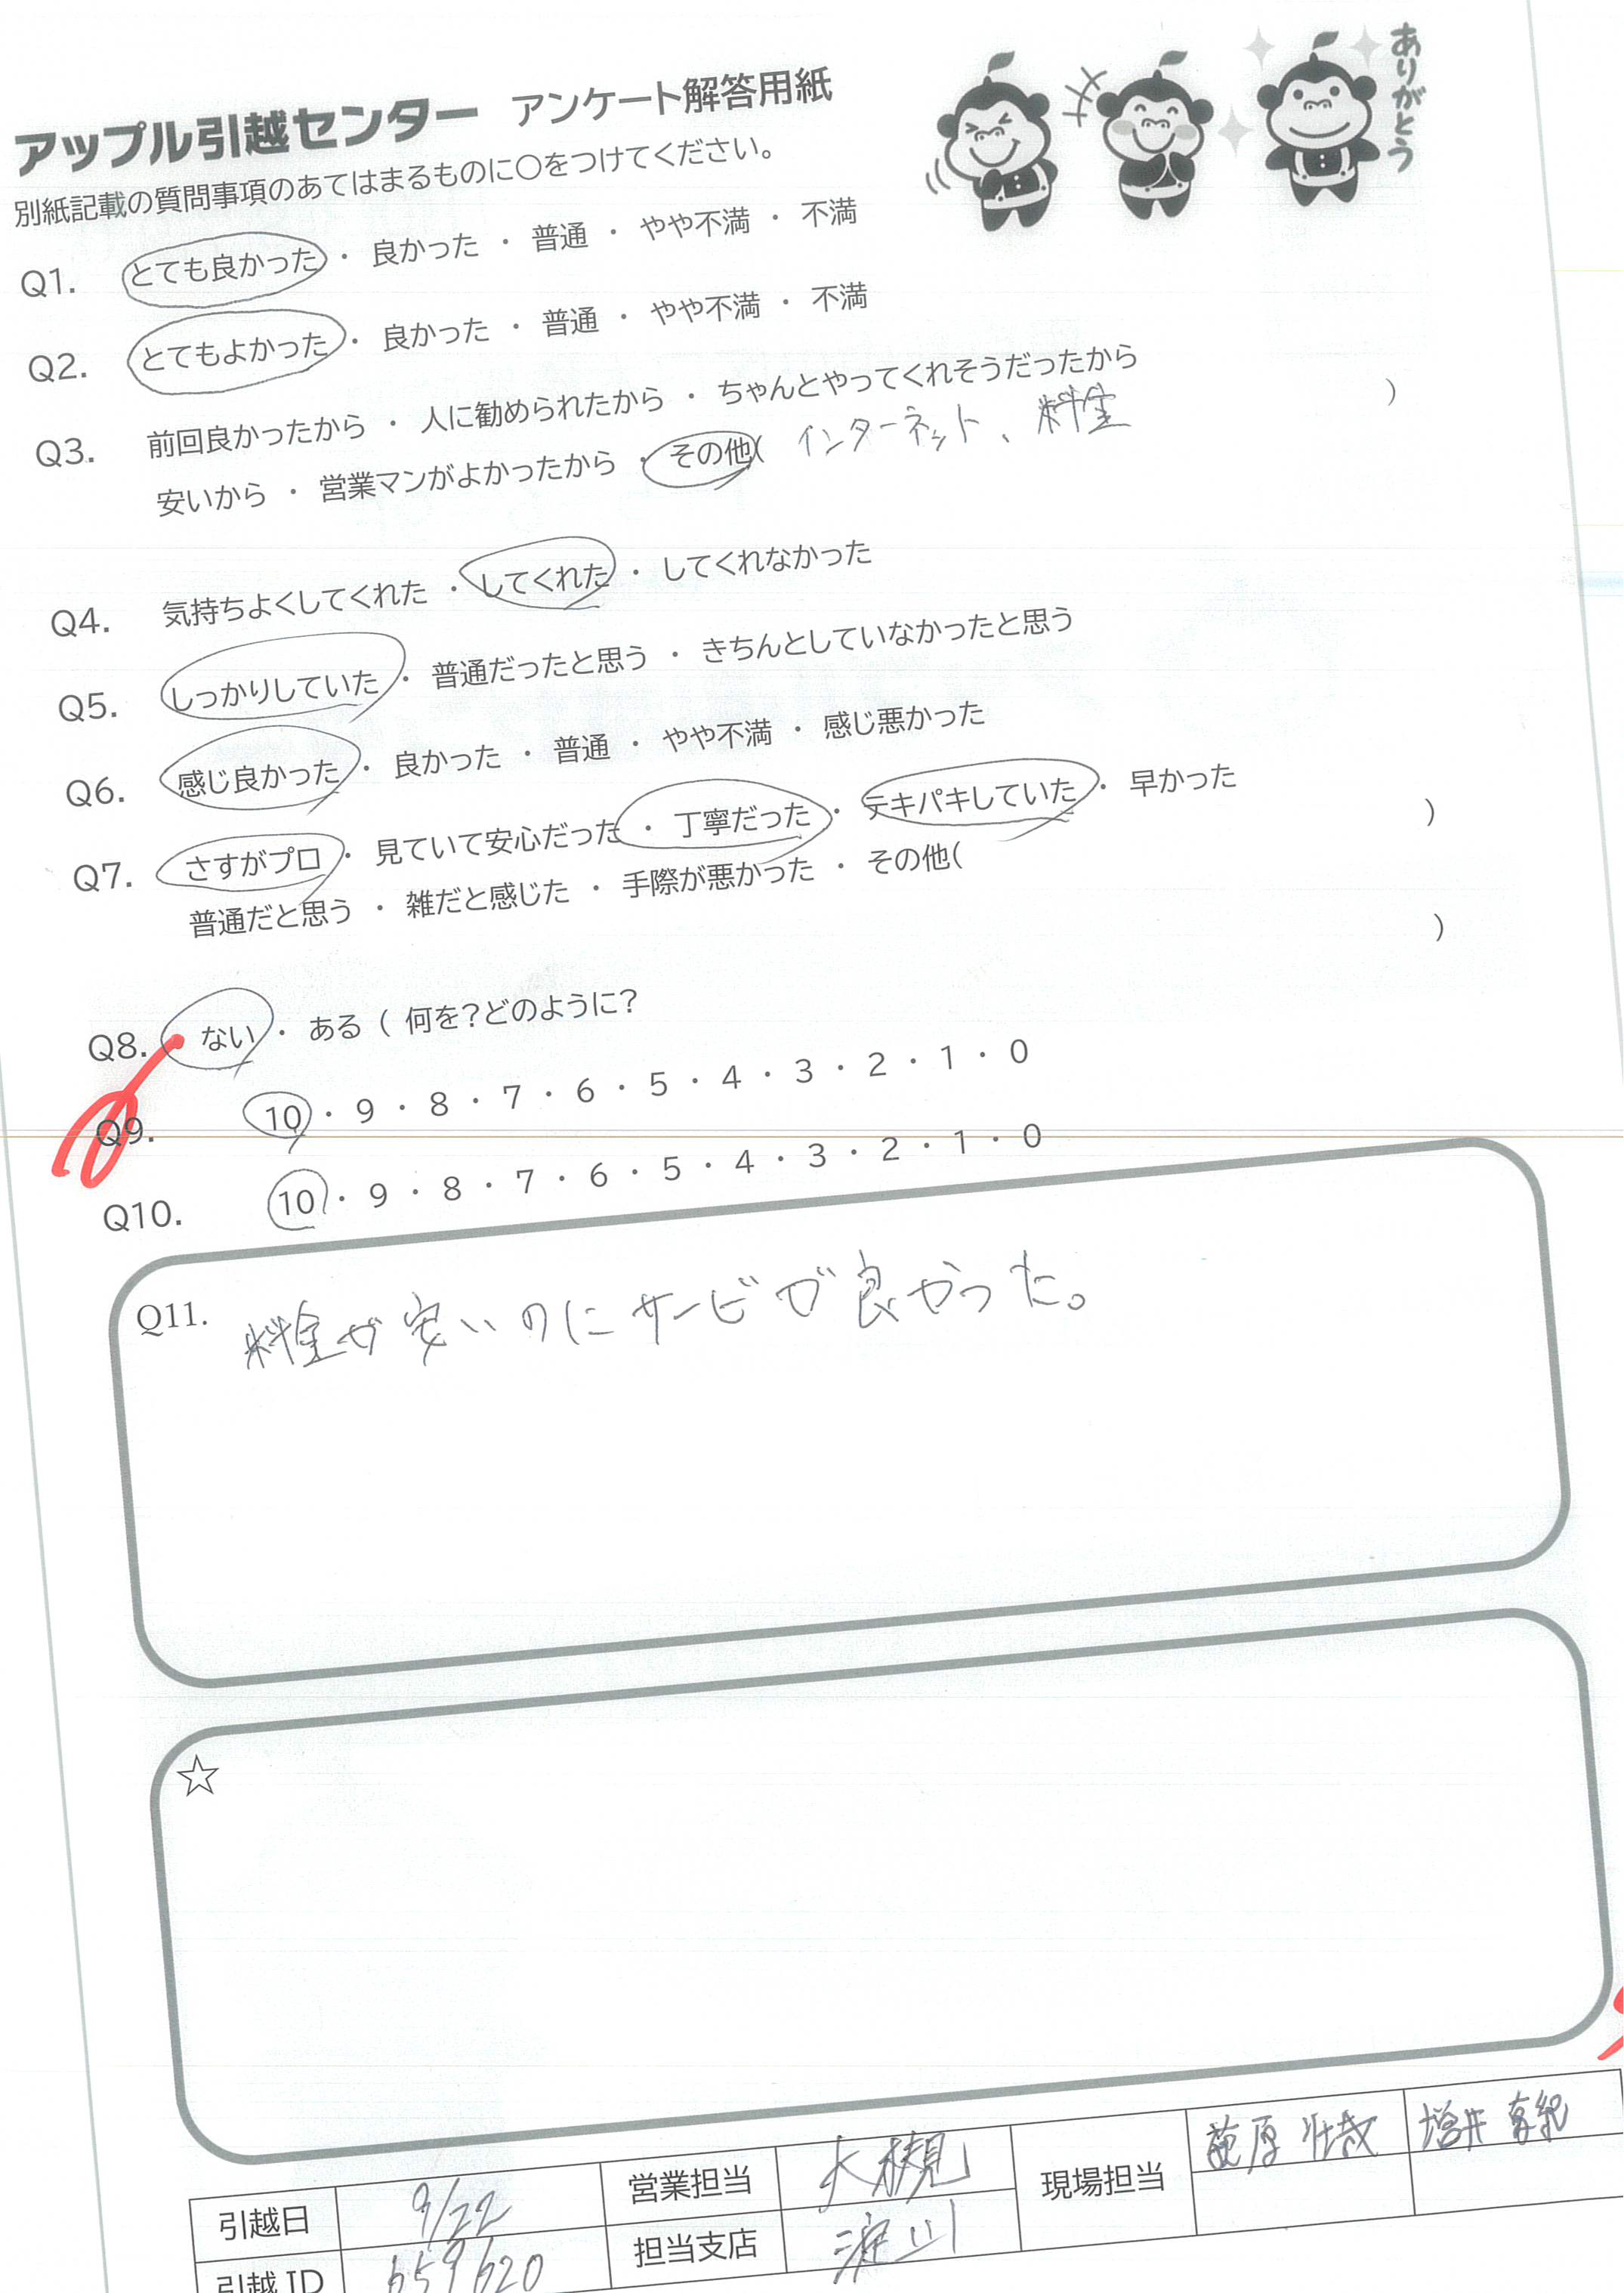 アップル引越センター アンケート解答用紙
ありがとう
別紙記載の質問事項のあてはまるものに○をつけてください。
Q1. とても良かった ・ 良かった ・ 普通 ・ やや不満 ・ 不満
Q2. とてもよかった ・ 良かった ・ 普通 ・ やや不満 ・ 不満
Q3. 前回良かったから ・ 人に勧められたから ・ ちゃんとやってくれそうだったから
安いから ・ 営業マンがよかったから ・ その他( インターネット、料金 )
Q4. 気持ちよくしてくれた ・ してくれた ・ してくれなかった
Q5. しっかりしていた ・ 普通だったと思う ・ きちんとしていなかったと思う
Q6. 感じ良かった ・ 良かった ・ 普通 ・ やや不満 ・ 感じ悪かった
Q7. さすがプロ ・ 見ていて安心だった ・ 丁寧だった ・ テキパキしていた ・ 早かった
普通だと思う ・ 雑だと感じた ・ 手際が悪かった ・ その他( )
Q8. ない ・ ある ( 何を?どのように? )
Q9. 10 ・ 9 ・ 8 ・ 7 ・ 6 ・ 5 ・ 4 ・ 3 ・ 2 ・ 1 ・ 0
Q10. 10 ・ 9 ・ 8 ・ 7 ・ 6 ・ 5 ・ 4 ・ 3 ・ 2 ・ 1 ・ 0
Q11. 料金が安いのにサービが良かった。
☆
引越日 9/22 営業担当 現場担当 増井
引越ID 659620 担当支店 淀川